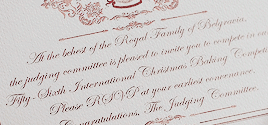 At the behest of the Royal Family of Belgravia,
the judging committee is pleased to invite you to compete in our
Fifty-Sixth International Christmas Baking
Please RSVP at your earliest convenience.
Congratulations, The Judging Committee.